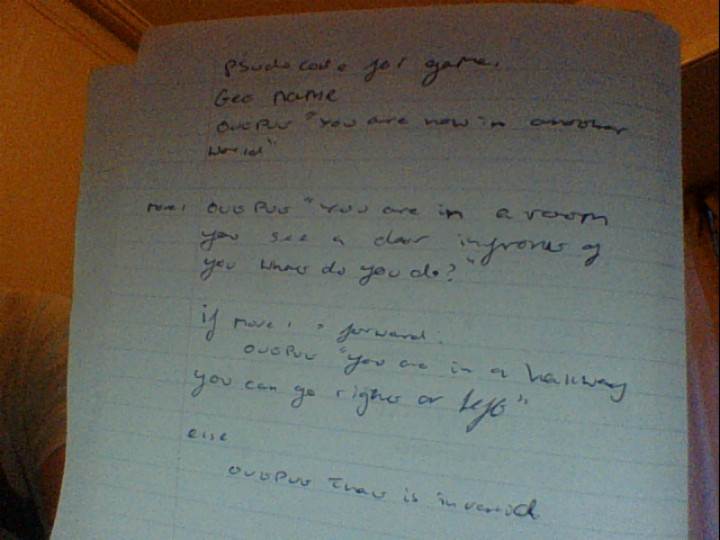 psudocode for game.
Get name
OUTPUT "You are now in another
world"
move1 OUTPUT "You are in a room
you see a door infront of
you what do you do?"
if move1 = forward:
OUTPUT "you are in a hallway
you can go right or left"
else
OUTPUT that is invalid